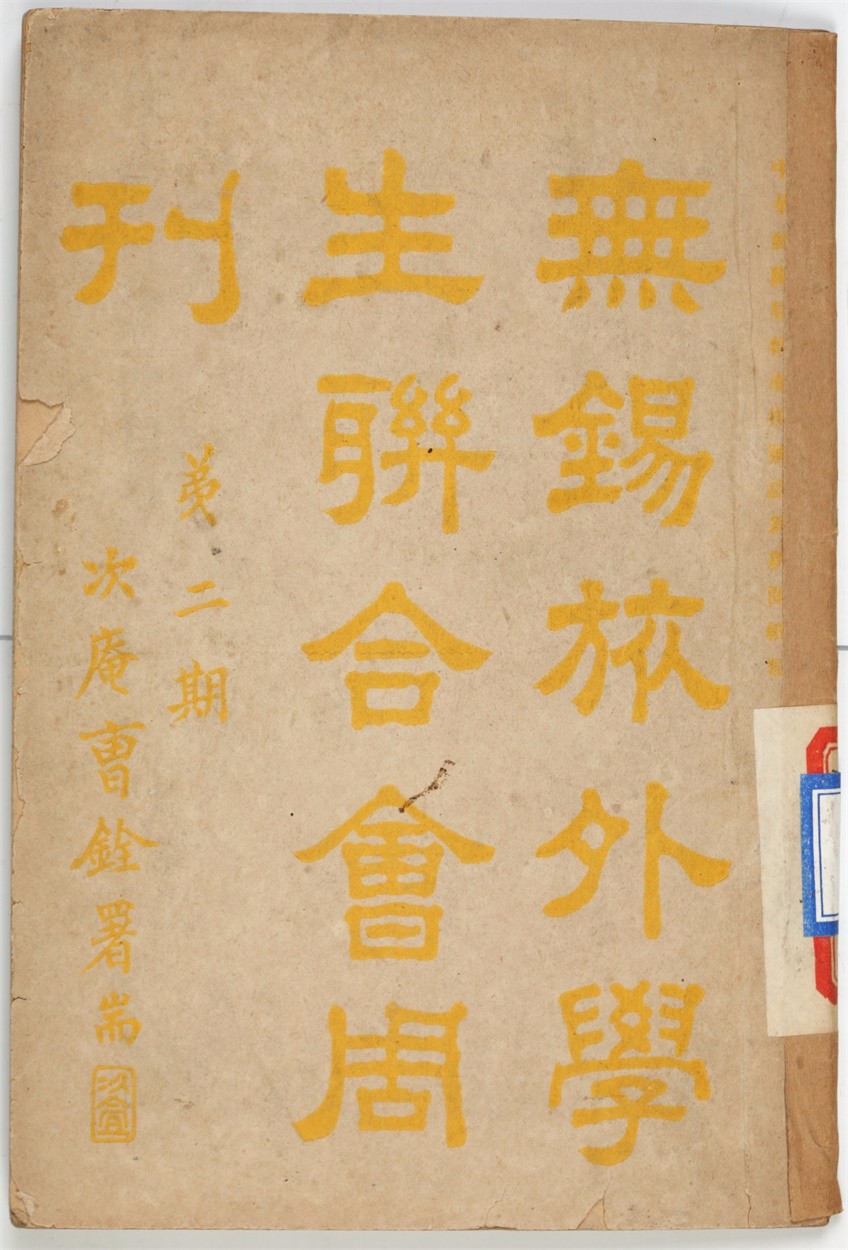 無錫旅外學
生聯合會周
刊
第二期
次庵曹銓署耑